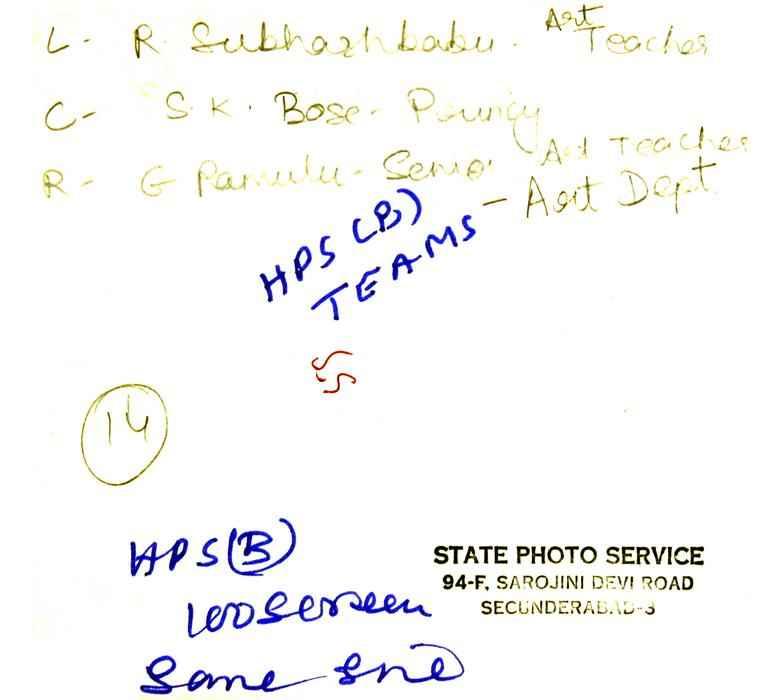 L- R. Subhashbabu. Art Teacher
C- S.K. Bose-
R- G Pamulu- Senior Art Teacher
- Art Dept.
HPS (B)
TEAMS
14
HPS(B)
100 Screen
Same Size
STATE PHOTO SERVICE
94-F, SAROJINI DEVI ROAD
SECUNDERABAD-3